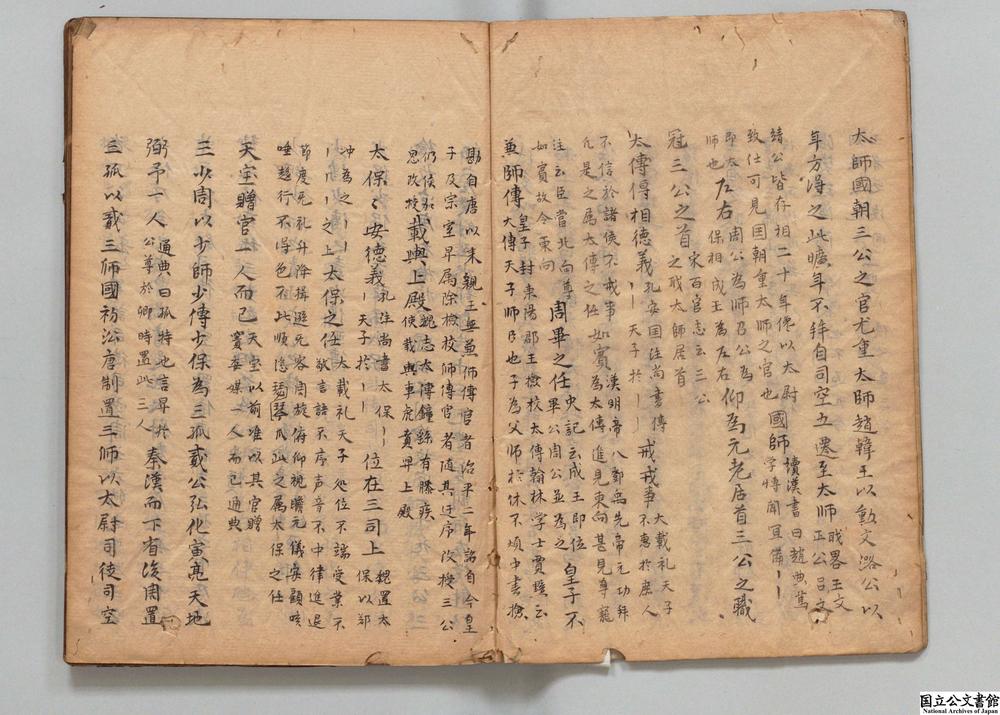 太師國朝三公之官尤重太師趙韓王以勲文潞公以
年方得之此曠年不拜自司空五遷至太師 戝畧王文
正公吕文
靖公皆存相二十年僅以太尉
致仕可見囯朝重太師之官也 國師 讀漢書曰趙典篤
学愽聞冝備一
即太
師也 左右 周公為師召公為
保相成王為左右 仰為元老居首三公之職
宋百官志云三公
冠三公之首 之戝太師居首
太傅得相德義 孔安囯注尚書傳
一天子於一 戒戒事 大戴礼天子
不惠於庶人
不信於諸侯不戒事
凢是之属太傅之任 如賔 漢明帝八鄧禹先帝元功拜
為太傅進見東向甚見尊寵
注云臣當北面尊
如賔故令東向 周畢之任 史記云成王即位
畢公周公並為之 皇子不
兼師傅 皇子封東陽郡王檢校太傅翰林学士賈黯云
大傅天子師臣也子為父師於体不順中書
勘自唐以来親王無兼師傅官者治平二年詔自今皇
子及宗室早属除檢校師傅官者随其迁序改授三公
仍侯
思改授 載輿上殿 魏志太傅鐘繇有膝疾
使載輿車虎賁舁上殿
太保保安德義 孔注尚書太保一一
一天子於一一 位在三司上 魏置太
保以郑
冲為之 一一之上太保之任 大戴礼天子処位不端受業不
敬言語不序声音不中律進退
節度死礼升降揖遜死容周旋俯仰視瞻元儀安顧咳
唾趍行不得色不比順隐琴瓜此之属太保之任
天室贈官一人而已 天宝以前唯以其官贈
竇娄媒一人而已通典
三少周以少師少傅少保為三孤貳公弘化寅亮天地
弼予一人 通典曰孤特也言卑於
公尊於卿時置此三人 秦漢而下省後周置
三孤以貳三師國初㳂唐制置三師以太尉司徒司空
国立公文書館
National Archives of Japan